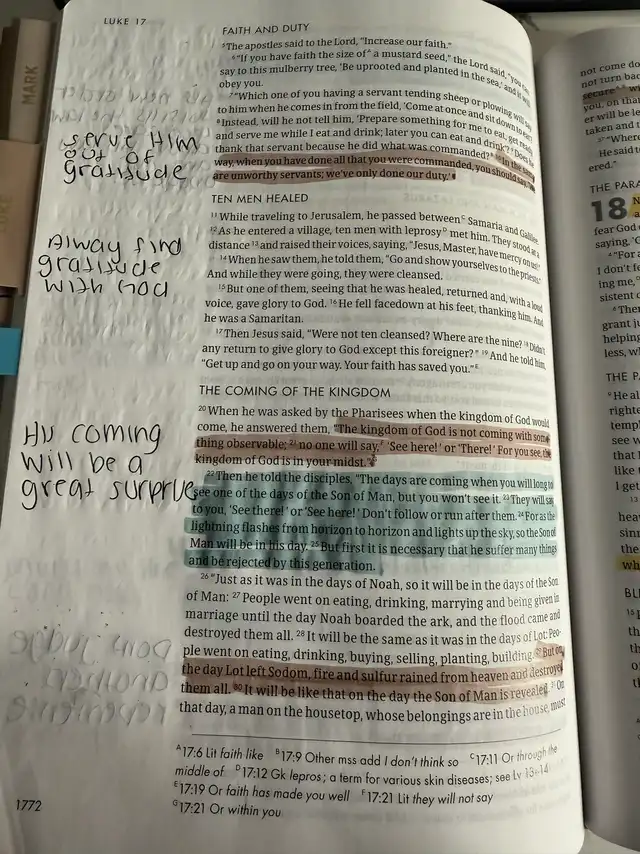 LUKE 17
MARK
serve Him
out of
gratitude
Alway find
gratitude
with God
His coming
will be a
great surprise
FAITH AND DUTY
5The apostles said to the Lord, "Increase our faith."
6"If you have faith the size of A a mustard seed," the Lord said, "you can
say to this mulberry tree, 'Be uprooted and planted in the sea,' and it will
obey you.
7"Which one of you having a servant tending sheep or plowing will say
to him when he comes in from the field, 'Come at once and sit down to eat'?
8Instead, will he not tell him, 'Prepare something for me to eat, get ready,
and serve me while I eat and drink; later you can eat and drink'? 9Does he
thank that servant because he did what was commanded? B 10In the same
way, when you have done all that you were commanded, you should say, 'We
are unworthy servants; we've only done our duty.'"
TEN MEN HEALED
11While traveling to Jerusalem, he passed between C Samaria and Galilee.
12As he entered a village, ten men with leprosy D met him. They stood at a
distance 13and raised their voices, saying, "Jesus, Master, have mercy on us!"
14When he saw them, he told them, "Go and show yourselves to the priests."
And while they were going, they were cleansed.
15But one of them, seeing that he was healed, returned and, with a loud
voice, gave glory to God. 16He fell facedown at his feet, thanking him. And
he was a Samaritan.
17Then Jesus said, "Were not ten cleansed? Where are the nine? 18Didn't
any return to give glory to God except this foreigner?" 19And he told him,
"Get up and go on your way. Your faith has saved you." E
THE COMING OF THE KINGDOM
20When he was asked by the Pharisees when the kingdom of God would
come, he answered them, "The kingdom of God is not coming with some-
thing observable; 21no one will say, F 'See here!' or 'There!' For you see, the
kingdom of God is in your midst." G
22Then he told the disciples, "The days are coming when you will long to
see one of the days of the Son of Man, but you won't see it. 23They will say
to you, 'See there!' or 'See here!' Don't follow or run after them. 24For as the
lightning flashes from horizon to horizon and lights up the sky, so the Son of
Man will be in his day. 25But first it is necessary that he suffer many things
and be rejected by this generation.
26"Just as it was in the days of Noah, so it will be in the days of the Son
of Man: 27People went on eating, drinking, marrying and being given in
marriage until the day Noah boarded the ark, and the flood came and
destroyed them all. 28It will be the same as it was in the days of Lot: Peo-
ple went on eating, drinking, buying, selling, planting, building. 29But on
the day Lot left Sodom, fire and sulfur rained from heaven and destroyed
them all. 30It will be like that on the day the Son of Man is revealed. 31On
that day, a man on the housetop, whose belongings are in the house, must
A 17:6 Lit faith like B 17:9 Other mss add I don't think so C 17:11 Or through the
middle of D 17:12 Gk lepros; a term for various skin diseases; see Lv 13–14
E 17:19 Or faith has made you well F 17:21 Lit they will not say
G 17:21 Or within you
1772
not come do
not turn bac
secure
you, on that
er will be le
taken and t
"Where
He said to
ered."
THE PARA
18
fear God
saying, 'G
4"For a
I don't fe
ing me,"
sistent c
6 Ther
grant ju
helping
less, wh
THE P
9He al
right
temp
see w
that
like
I get
13
hea
sin
the
wh
BL
15